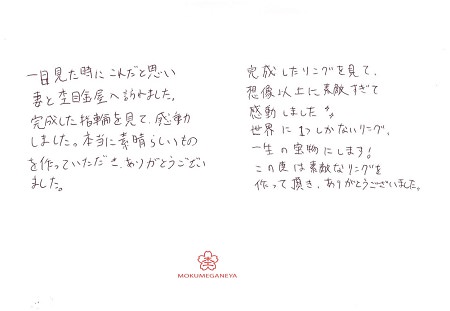 一目見た時にこれだと思い
妻と杢目金屋へ訪れました。
完成した指輪を見て、感動
しました。本当に素晴らしいもの
を作っていただき、ありがとうござい
ました。
完成したリングを見て、
想像以上に素敵すぎて
感動しました
世界に1つしかないリング、
一生の宝物にします!
この度は素敵なリングを
作って頂き、ありがとうございました。
MOKUMEGANEYA